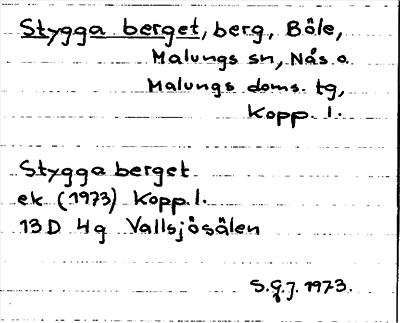 Stygga berget, berg, Böle,
Malungs sn, Nås o.
Malungs doms. tg,
Kopp. l.
Stygga berget
ek (1973) Kopp. l.
13D 4g Vallsjösälen
S.G.J. 1973.